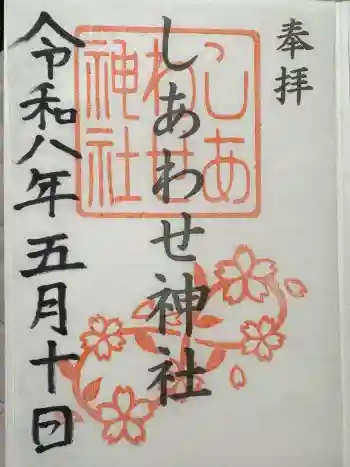 奉拝
しあわせ神社
しあわせ神社
令和八年五月十日